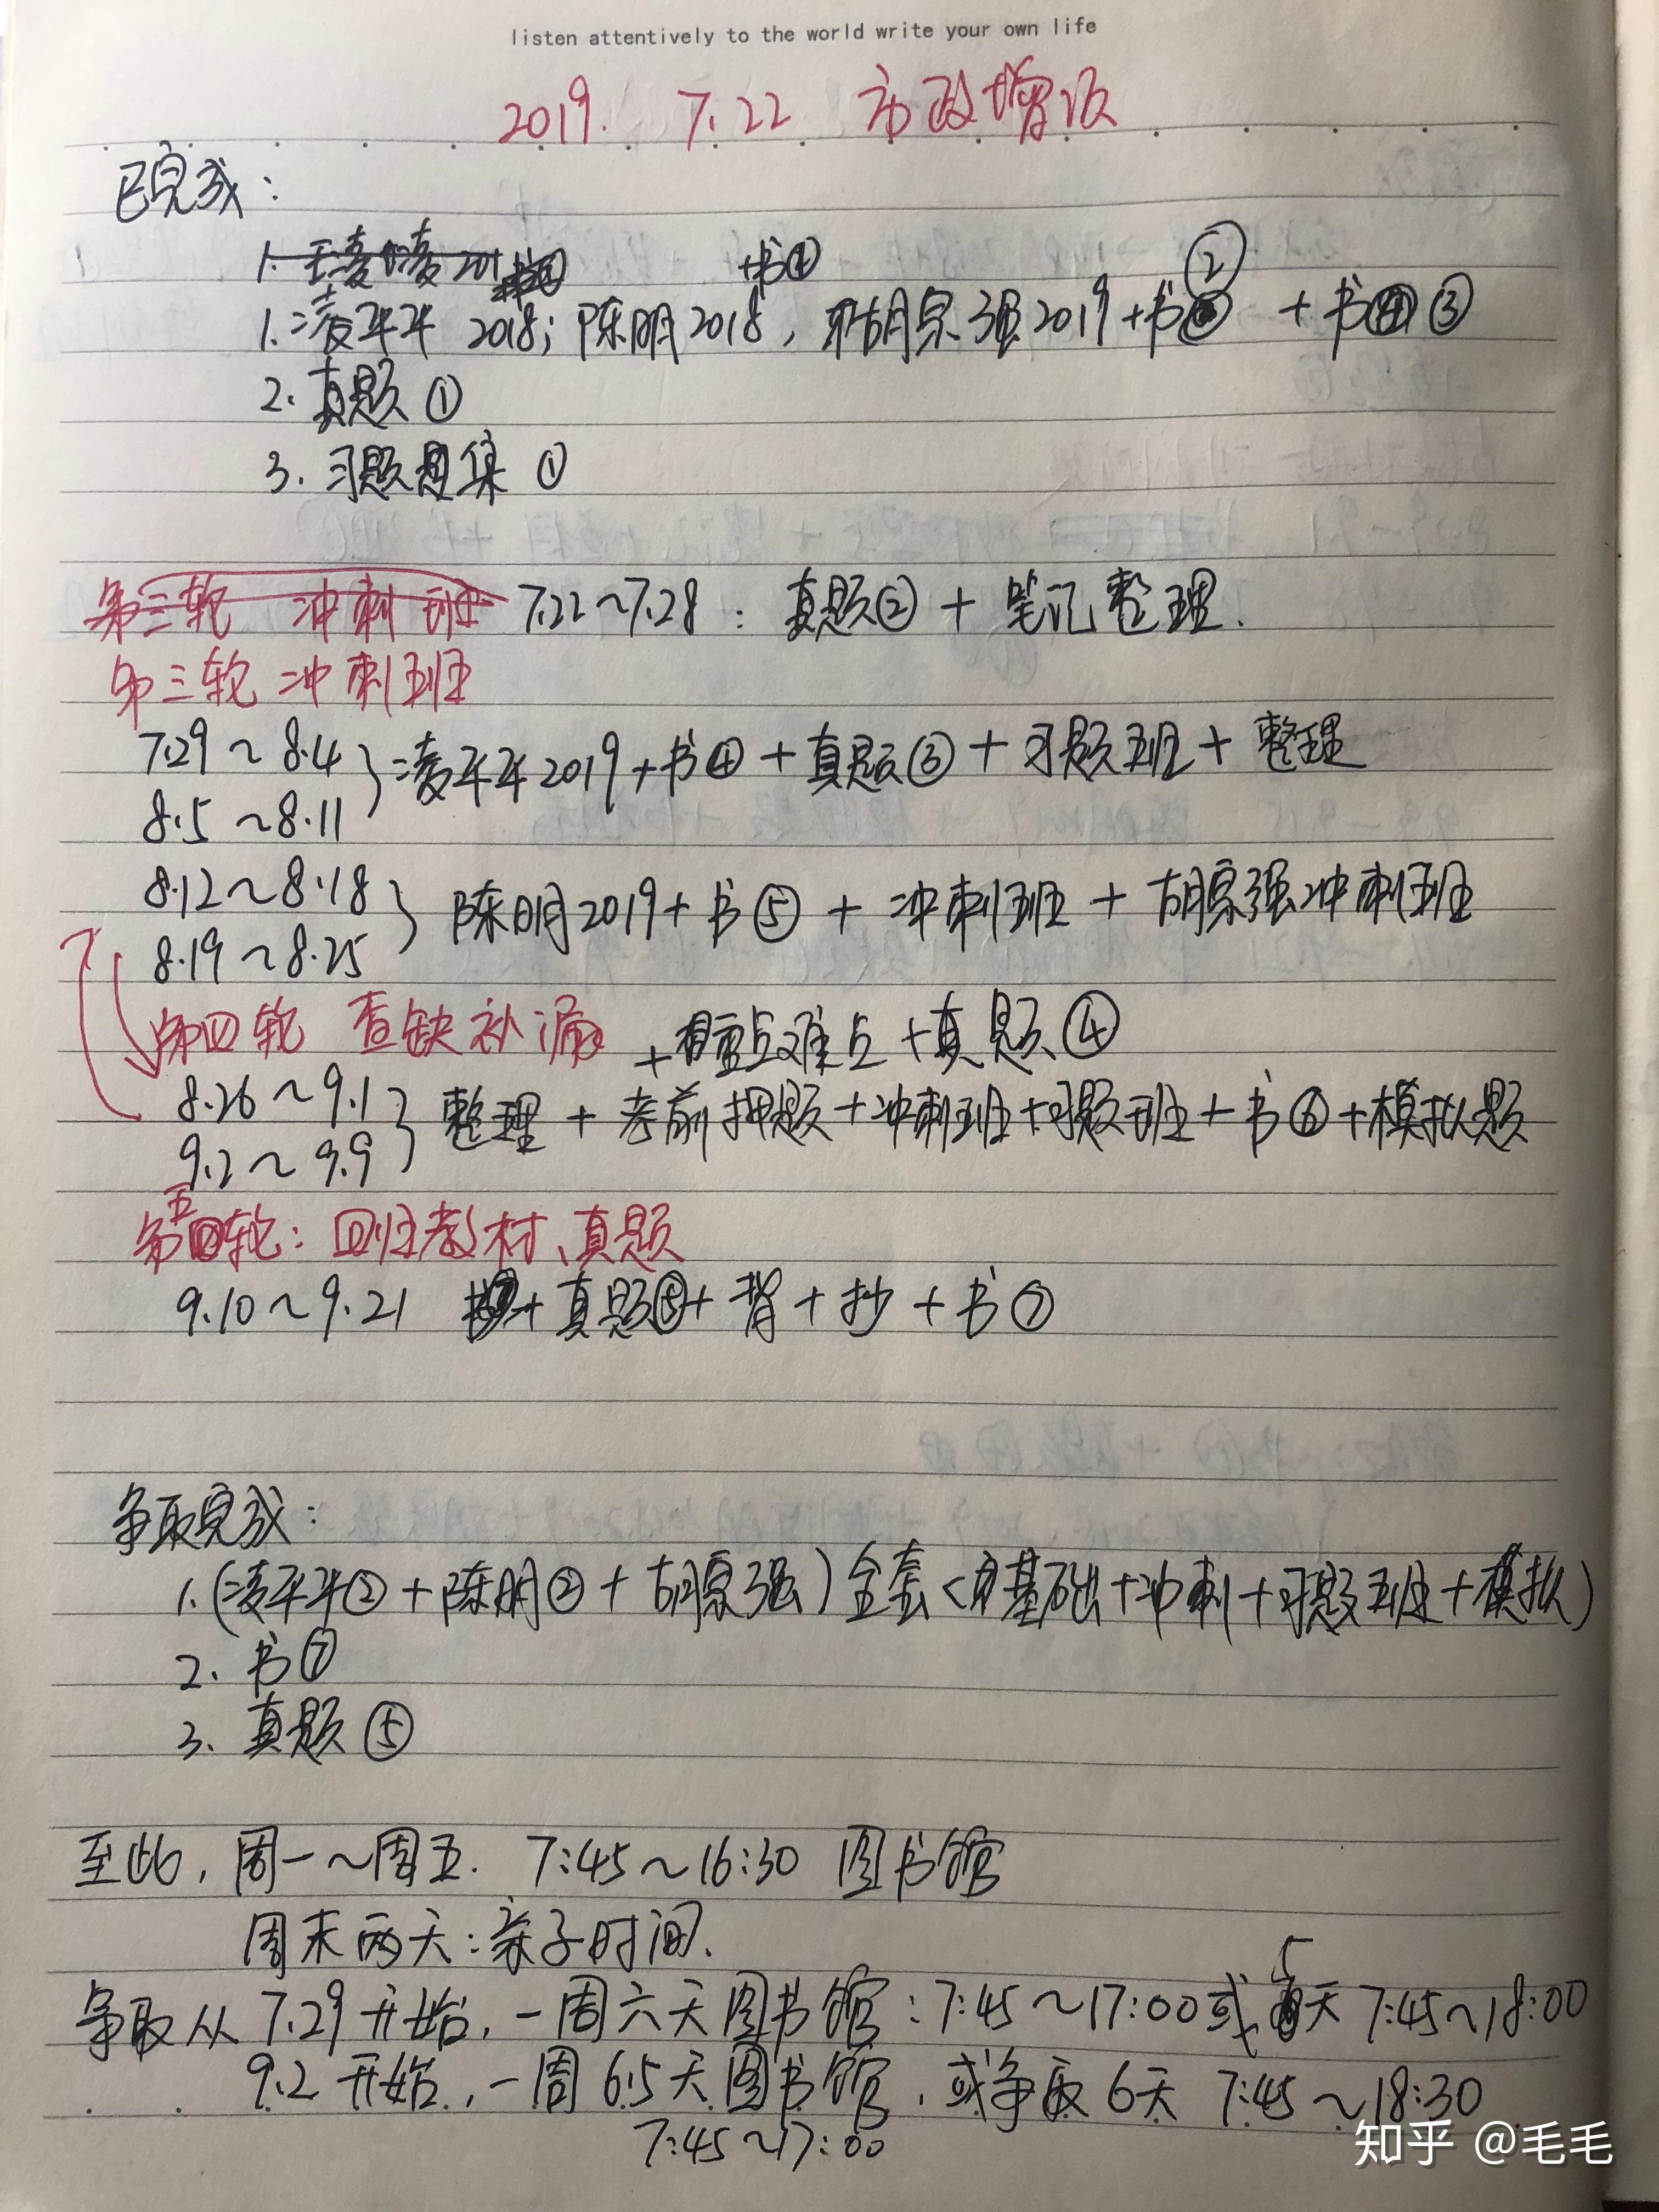 listen attentively to the world write your own life
2019. 7.22 市政增项
已完成：
+书①
1. 凌平平 2018；陈明2018，胡宗强2019+书② +书③
2. 真题①
3. 习题题集①
第三轮 冲刺班 7.22～7.28：真题②+笔记整理.
第三轮 冲刺班
7.29～8.4
8.5～8.11
凌平平2019+书④+真题③+习题班+整理
8.12～8.18
8.19～8.25
陈明2019+书⑤+冲刺班+胡宗强冲刺班
第四轮 查缺补漏 +重点难点+真题④
8.26～9.1
9.2～9.9
整理+考前押题+冲刺班+习题班+书⑥+模拟题
第五轮：回归教材、真题
9.10～9.21 +真题⑤+背+抄+书⑦
争取完成：
1.(凌平平②+陈明②+胡宗强)全套<基础+冲刺+习题班+模拟)
2. 书⑦
3. 真题⑤
至此，周一～周五. 7:45～16:30 图书馆
周末两天：亲子时间.
争取从7.29开始，一周六天图书馆：7:45～17:00或5天7:45～18:00
9.2开始，一周6.5天图书馆，或争取6天 7:45～18:30
7:45～17:00
知乎 @毛毛